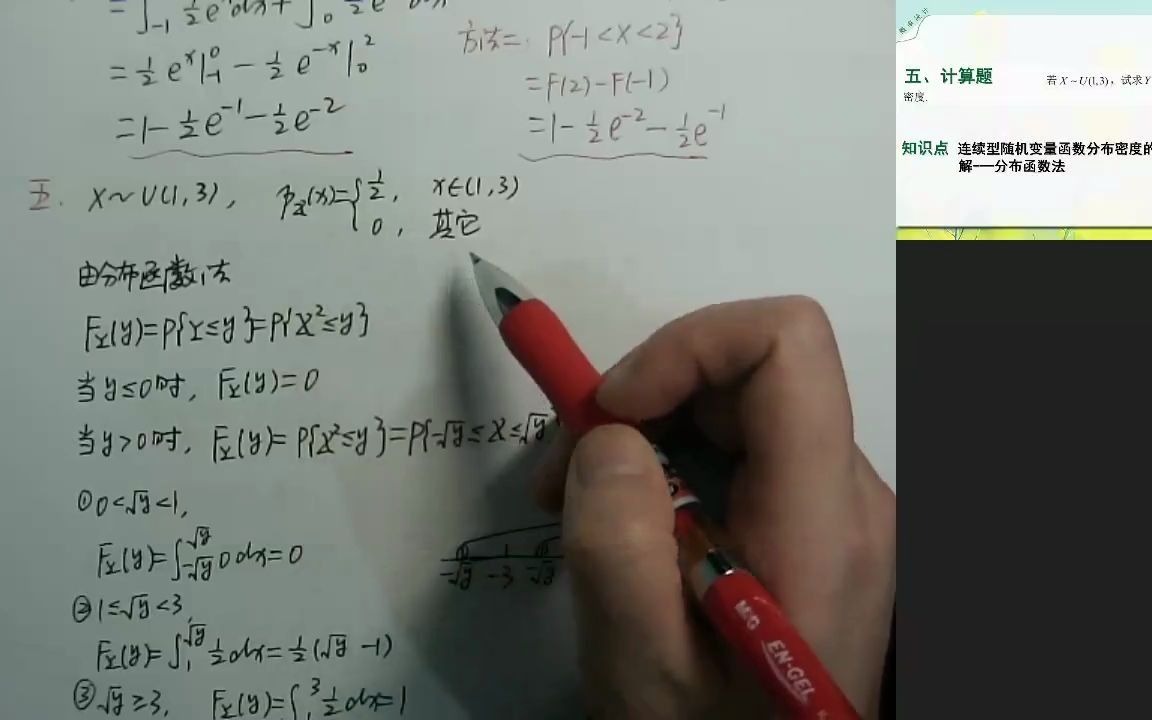 = ∫₋₁ ½eˣdx + ∫₀ ½e dx
= ½eˣ|⁰₋₁ − ½e⁻ˣ|²₀
= 1 − ½e⁻¹ − ½e⁻²
方法二: P{-1<X<2}
= F(2) − F(−1)
= 1 − ½e⁻² − ½e⁻¹
五. X~U(1,3), p_X(x)={½, x∈(1,3)
0, 其它
由分布函数法
F_Y(y)=P{Y≤y}=P{X²≤y}
当y≤0时, F_Y(y)=0
当y>0时, F_Y(y)=P{X²≤y}=P{-√y≤X≤√y
①0<√y<1,
F_Y(y)=∫_{-√y}^{√y} 0dx=0
-√y −3 -√y
②1≤√y<3,
F_Y(y)=∫₁^{√y} ½dx=½(√y −1)
③√y≥3, F_Y(y)=∫₁³ ½dx=1
M&G
EN-GEL
五、计算题 若X~U(1,3), 试求Y
密度.
知识点 连续型随机变量函数分布密度的
解---分布函数法